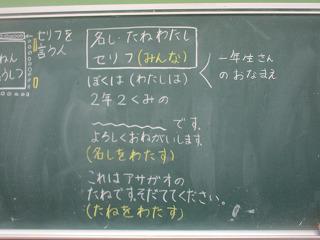 セリフを
言う人
名し・たねわたし
セリフ(みんな)
一年生さん
のおなまえ
ぼくは(わたしは)
2年2くみの
です。
よろしくおねがいします。
(名しをわたす)
これはアサガオの
たねです。そだててください。
(たねをわたす)